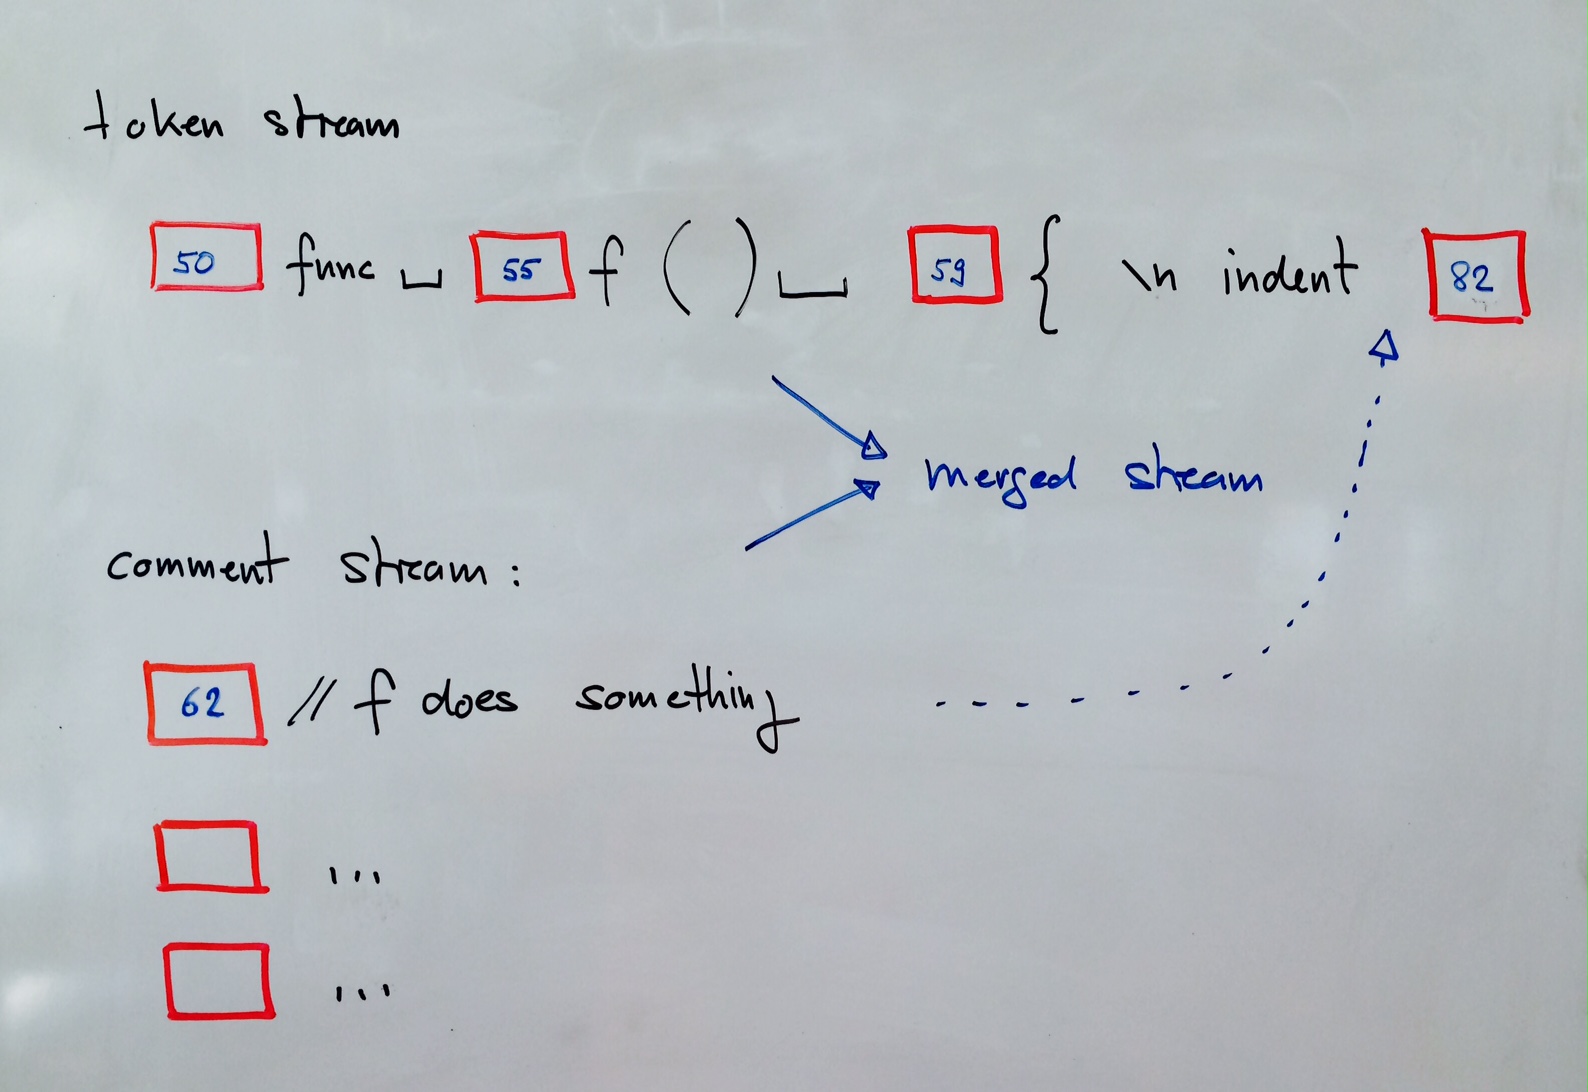 token stream
50 func ␣ 55 f ( ) ␣ 59 { \n indent 82
merged stream
comment stream:
62 // f does something
...
...